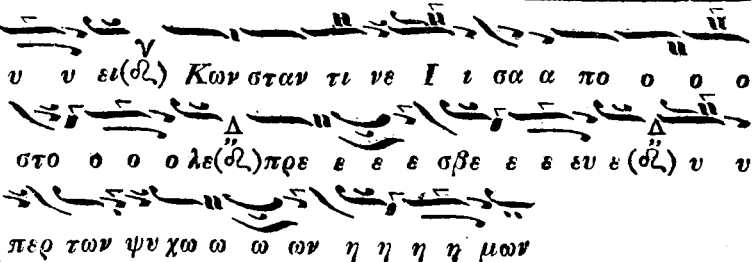 υ υ ει(δ) Κων σταν τι νε Ι ι σα α πο ο ο ο
στο ο ο ο λε(δ) πρε ε ε ε σβε ε ε ευ ε(δ) υ υ
περ των ψυ χω ω ω ων η η η η μων